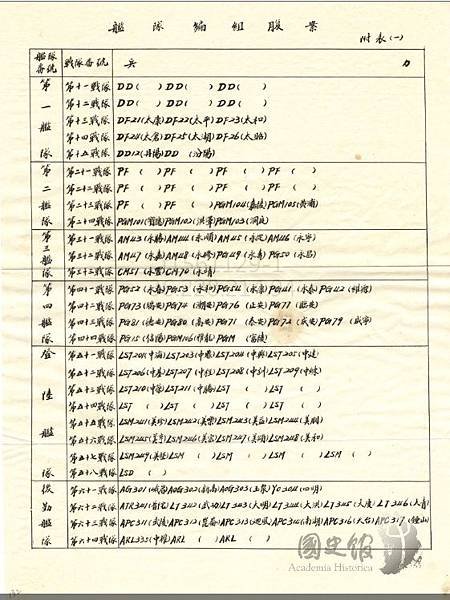 艦隊編組腹案
附表(一)
艦隊番號 戰隊番號 兵 力
第一艦隊
第十一戰隊 DD( ) DD( ) DD( )
第十二戰隊 DD( ) DD( ) DD( )
第十三戰隊 DF21(太康) DF22(太平) DF23(太和)
第十四戰隊 DF24(太倉) DF25(太湖) DF26(太昭)
第十五戰隊 DD12(丹陽) DD (汾陽)
第二艦隊
第二十一戰隊 PF ( ) PF ( ) PF ( ) PF ( )
第二十二戰隊 PF ( ) PF ( ) PF ( ) PF ( )
第二十三戰隊 PF ( ) PF ( ) PGM104(嘉陵) PGM105(黃埔)
第二十四戰隊 PGM101 PGM102(洪澤) PGM103(洞庭)
第三艦隊
第三十一戰隊 AM43(永勝) AM44(永順) AM45(永定) AM46(永寧)
第三十二戰隊 AM47(永嘉) AM48(永修) PG49(永壽) PG50(永昌)
第三十三戰隊 CM51 CM70(永靖)
第四艦隊
第四十一戰隊 PG52(永春) PG53(永和) PG54(永泰) PG141(永康) PG142(維源)
第四十二戰隊 PG73(瑞安) PG74(潮安) PG76(正安) PG77(臨安)
第四十三戰隊 PG81(德安) PG80(高安) PG71(泰安) PG72 PG79(咸寧)
第四十四戰隊 PG15(信陽) PGM106(雅龍) PGM (富陵)
登陸艦隊
第五十一戰隊 LST201(中海) LST203(中鼎) LST204(中興) LST205(中建)
第五十二戰隊 LST206(中基) LST207(中程) LST208(中訓) LST209(中練)
第五十三戰隊 LST210(中榮) LST211(中勝) LST ( ) LST ( )
第五十四戰隊 LST ( ) LST ( ) LST ( ) LST ( )
第五十五戰隊 LSM241(美珍) LSM242(美樂) LSM243(美益) LSM244(美朋)
第五十六戰隊 LSM245(美亨) LSM246(美宏) LSM247(美頌) LSM248(美和)
第五十七戰隊 LSM249 LSM ( ) LSM ( ) LSM ( )
第五十八戰隊 LSD ( )
後勤艦隊
第六十一戰隊 AG301(峨嵋) AOG302(新高) AOG303(玉泉) YO304(四明)
第六十二戰隊 ATR341 LT342(武功) LT343(大明) LT344(大洪) LT345(大庾) LT346(大青)
第六十三戰隊 APC311(武陵) APC312(崑崙) APC313 APC314 APC316(天台) APC317(鍾山)
第六十四戰隊 ARL335(中權) ARL ( ) ARL ( )
國史館
Academia Historica